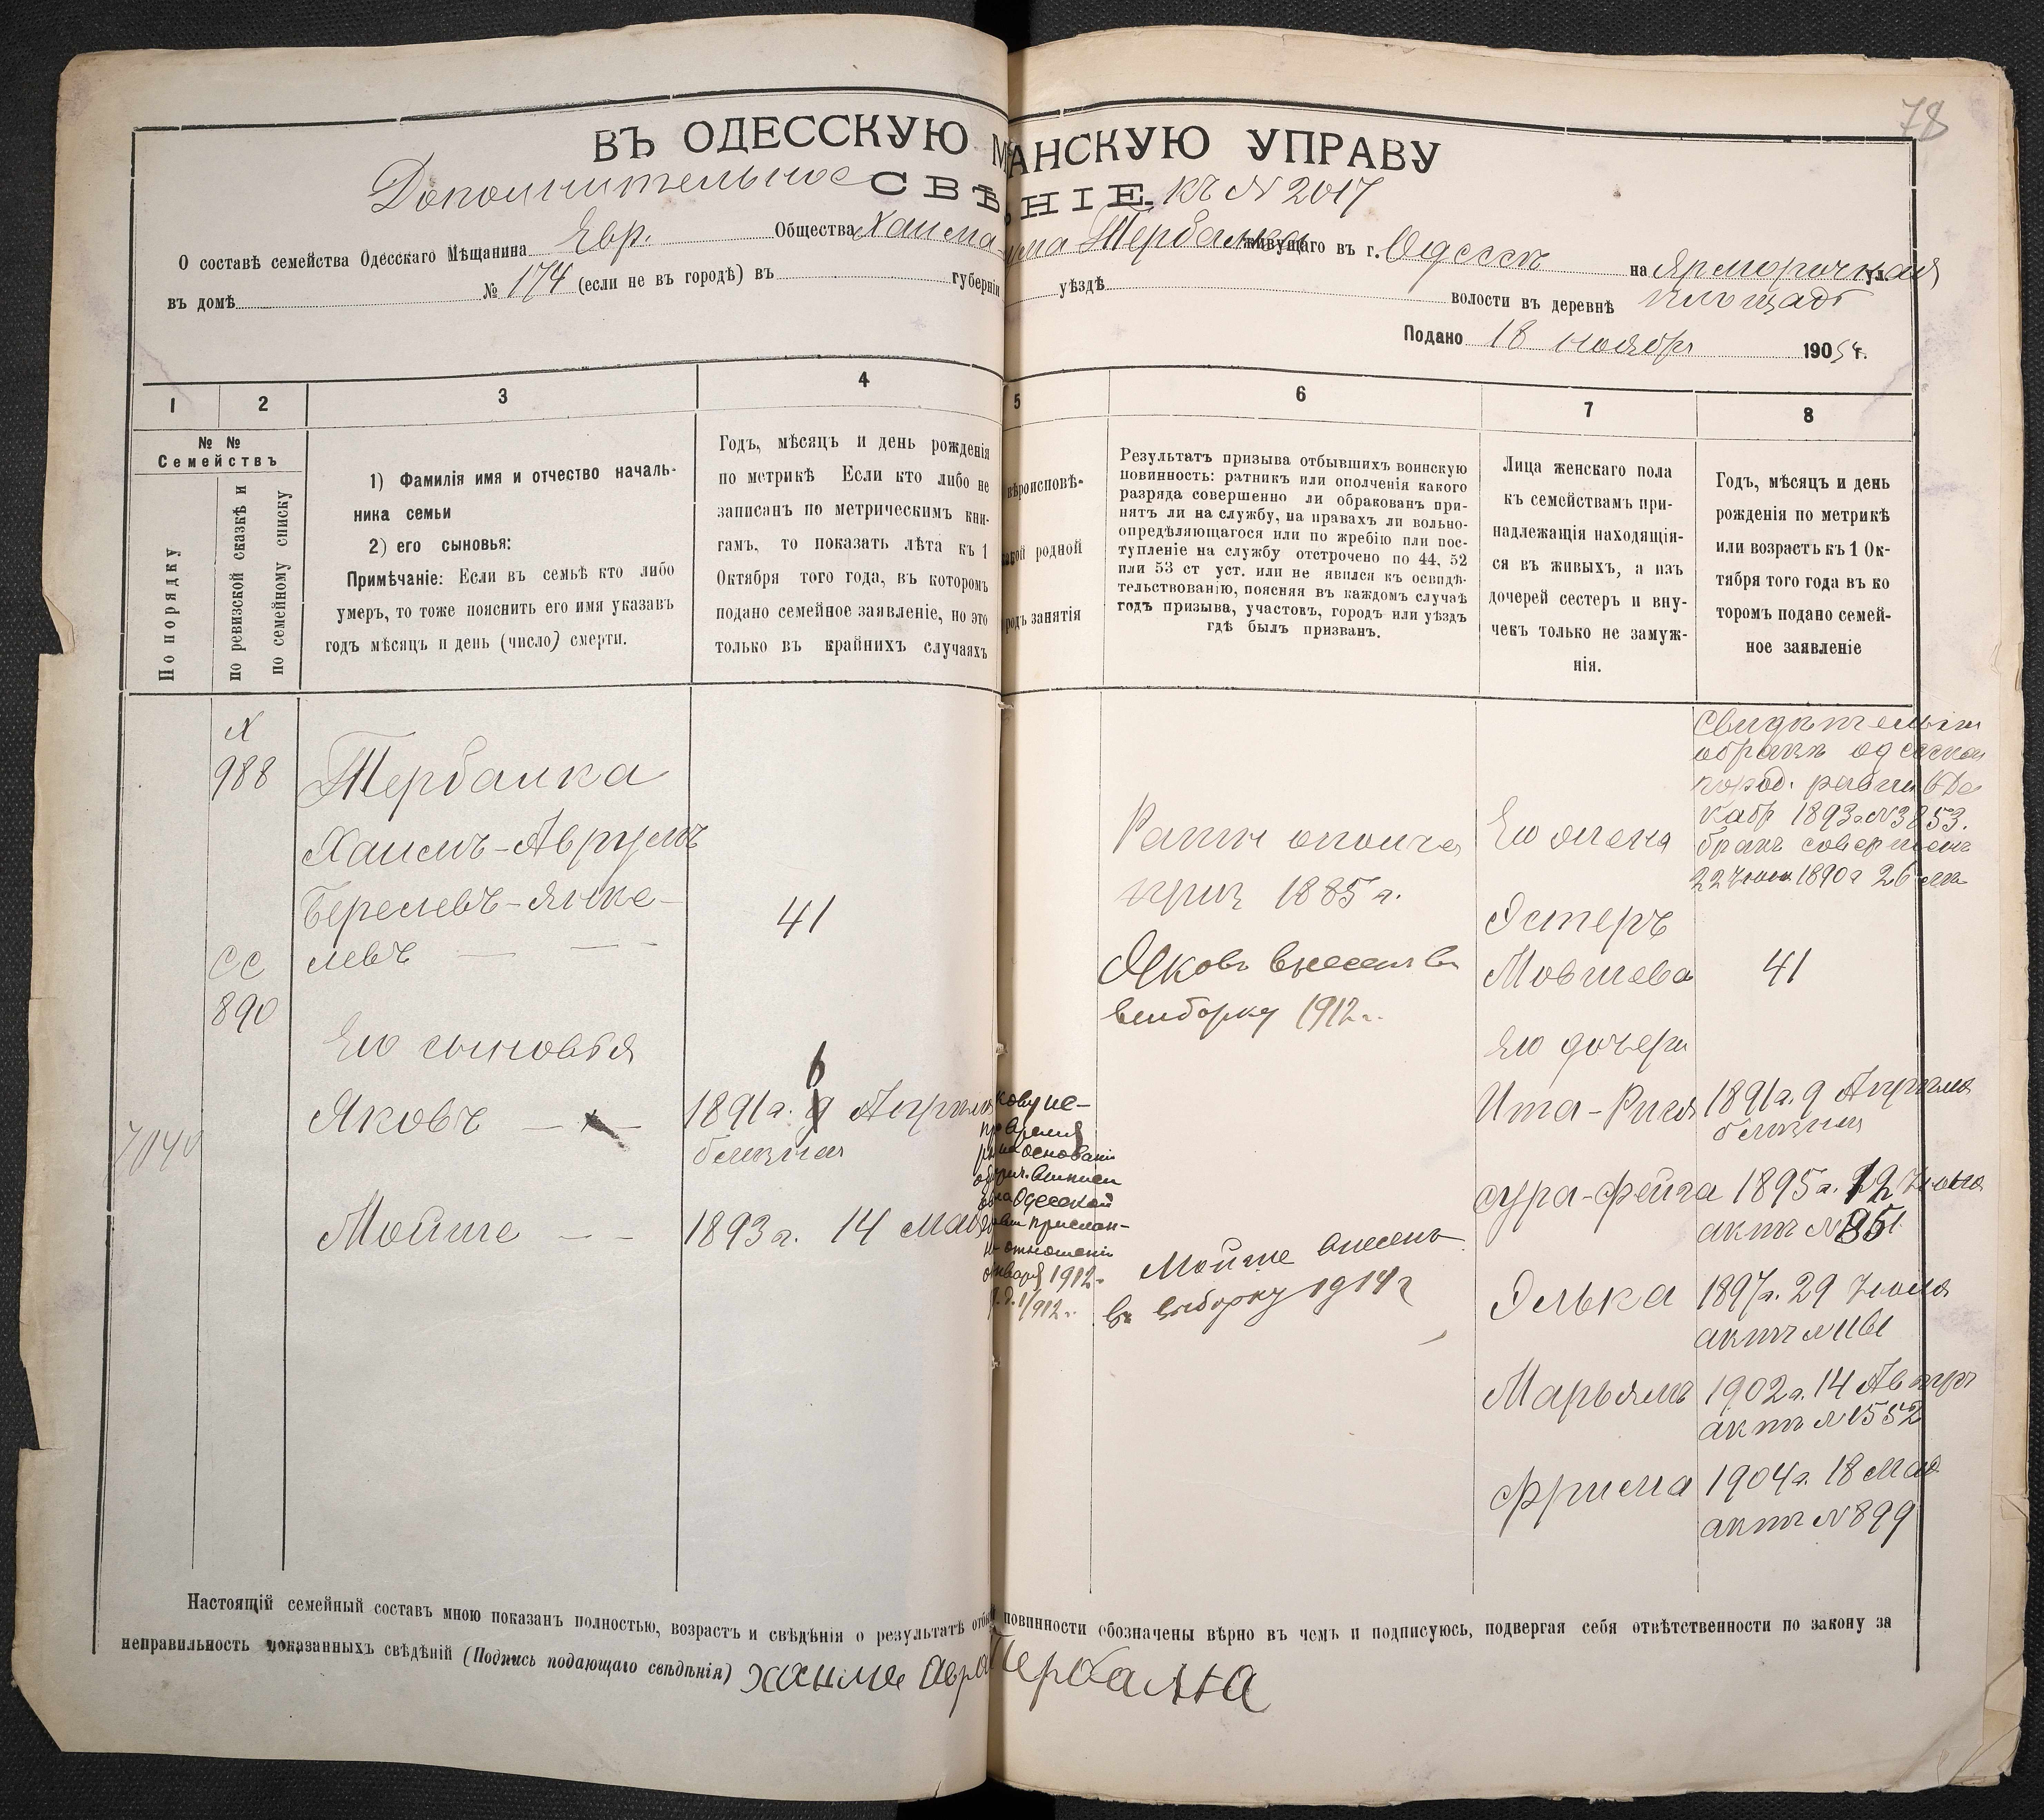 78
ВЪ ОДЕССКУЮ М АНСКУЮ УПРАВУ
Дополнительное СВѢ НІЕ. къ № 2017
О составѣ семейства Одесскаго Мѣщанина Евр. Общества Хаима- Тербалка живущаго въ г. Одессѣ на Ярморочная ул.
въ домѣ № 174 (если не въ городѣ) въ губерніи уѣздѣ волости въ деревнѣ площадь
Подано 18 ноября 1905 г.
1 2 3 4 5 6 7 8
№ №
Семействъ
По порядку
по ревизской сказкѣ и
по семейному списку
1) Фамилія имя и отчество началь-
ника семьи
2) его сыновья:
Примѣчаніе: Если въ семьѣ кто либо
умеръ, то тоже пояснить его имя указавъ
годъ мѣсяцъ и день (число) смерти.
Годъ, мѣсяцъ и день рожденія
по метрикѣ Если кто либо не
записанъ по метрическимъ кни-
гамъ, то показать лѣта къ 1
Октября того года, въ которомъ
подано семейное заявленіе, но это
только въ крайнихъ случаяхъ
вѣроисповѣ-
акой родной
родъ занятія
Результатъ призыва отбывшихъ воинскую
повинность: ратникъ или ополченія какого
разряда совершенно ли обракованъ при-
нятъ ли на службу, на правахъ ли вольно-
опредѣляющагося или по жребію или пос-
тупленіе на службу отсрочено по 44, 52
или 53 ст уст. или не явился къ освидѣ-
тельствованію, поясняя въ каждомъ случаѣ
годъ призыва, участокъ, городъ или уѣздъ
гдѣ былъ призванъ.
Лица женскаго пола
къ семействамъ при-
надлежащія находящія-
ся въ живыхъ, а изъ
дочерей сестеръ и вну-
чекъ только не замуж-
нія.
Годъ, мѣсяцъ и день
рожденія по метрикѣ
или возрастъ къ 1 Ок-
тября того года въ ко
торомъ подано семей-
ное заявленіе
№
988
СС
890
7040
Тербалка
Хаимъ-Аврумъ
Берелевъ-Янке-
левъ — —
41
Его сыновья
Яковъ —
1891 г. 6 9 Апрѣля
близнец
Мойше — —
1893 г. 14 мая
кову не-
время
на основаніи
выписи
Одесской
прислан-
отношеніи
января 1912 г.
1/912 г.
Ратн ополче
приз 1885 г.
Яковъ внесенъ въ
выборку 1912 г.
Мойше внесенъ
въ выборку 1914 г
Его жена
Эстеръ
Мовшева
41
Его дочери
Свидѣтельств
о бракѣ одесскаго
город. равин 6 Де
кабр 1893 г № 3853.
бракъ совершенъ
22 1890 г 26
Ита-Рися
1891 г. 9 Апрѣля
близнец
Сура-Фейга
1895 г. 12 Июня
актъ № 851
Элька
1897 г. 29 Июля
актъ № 1161
Марьямъ
1902 г. 14 Августр
актъ № 1552
Фрима
1904 г. 18 Мая
актъ № 899
Настоящій семейный составъ мною показанъ полностью, возрастъ и свѣдѣнія о результатѣ отбы повинности обозначены вѣрно въ чемъ и подписуюсь, подвергая себя отвѣтственности по закону за
неправильность показанныхъ свѣдѣній (Подпись подающаго свѣдѣнія) хаиме авра Тербалка